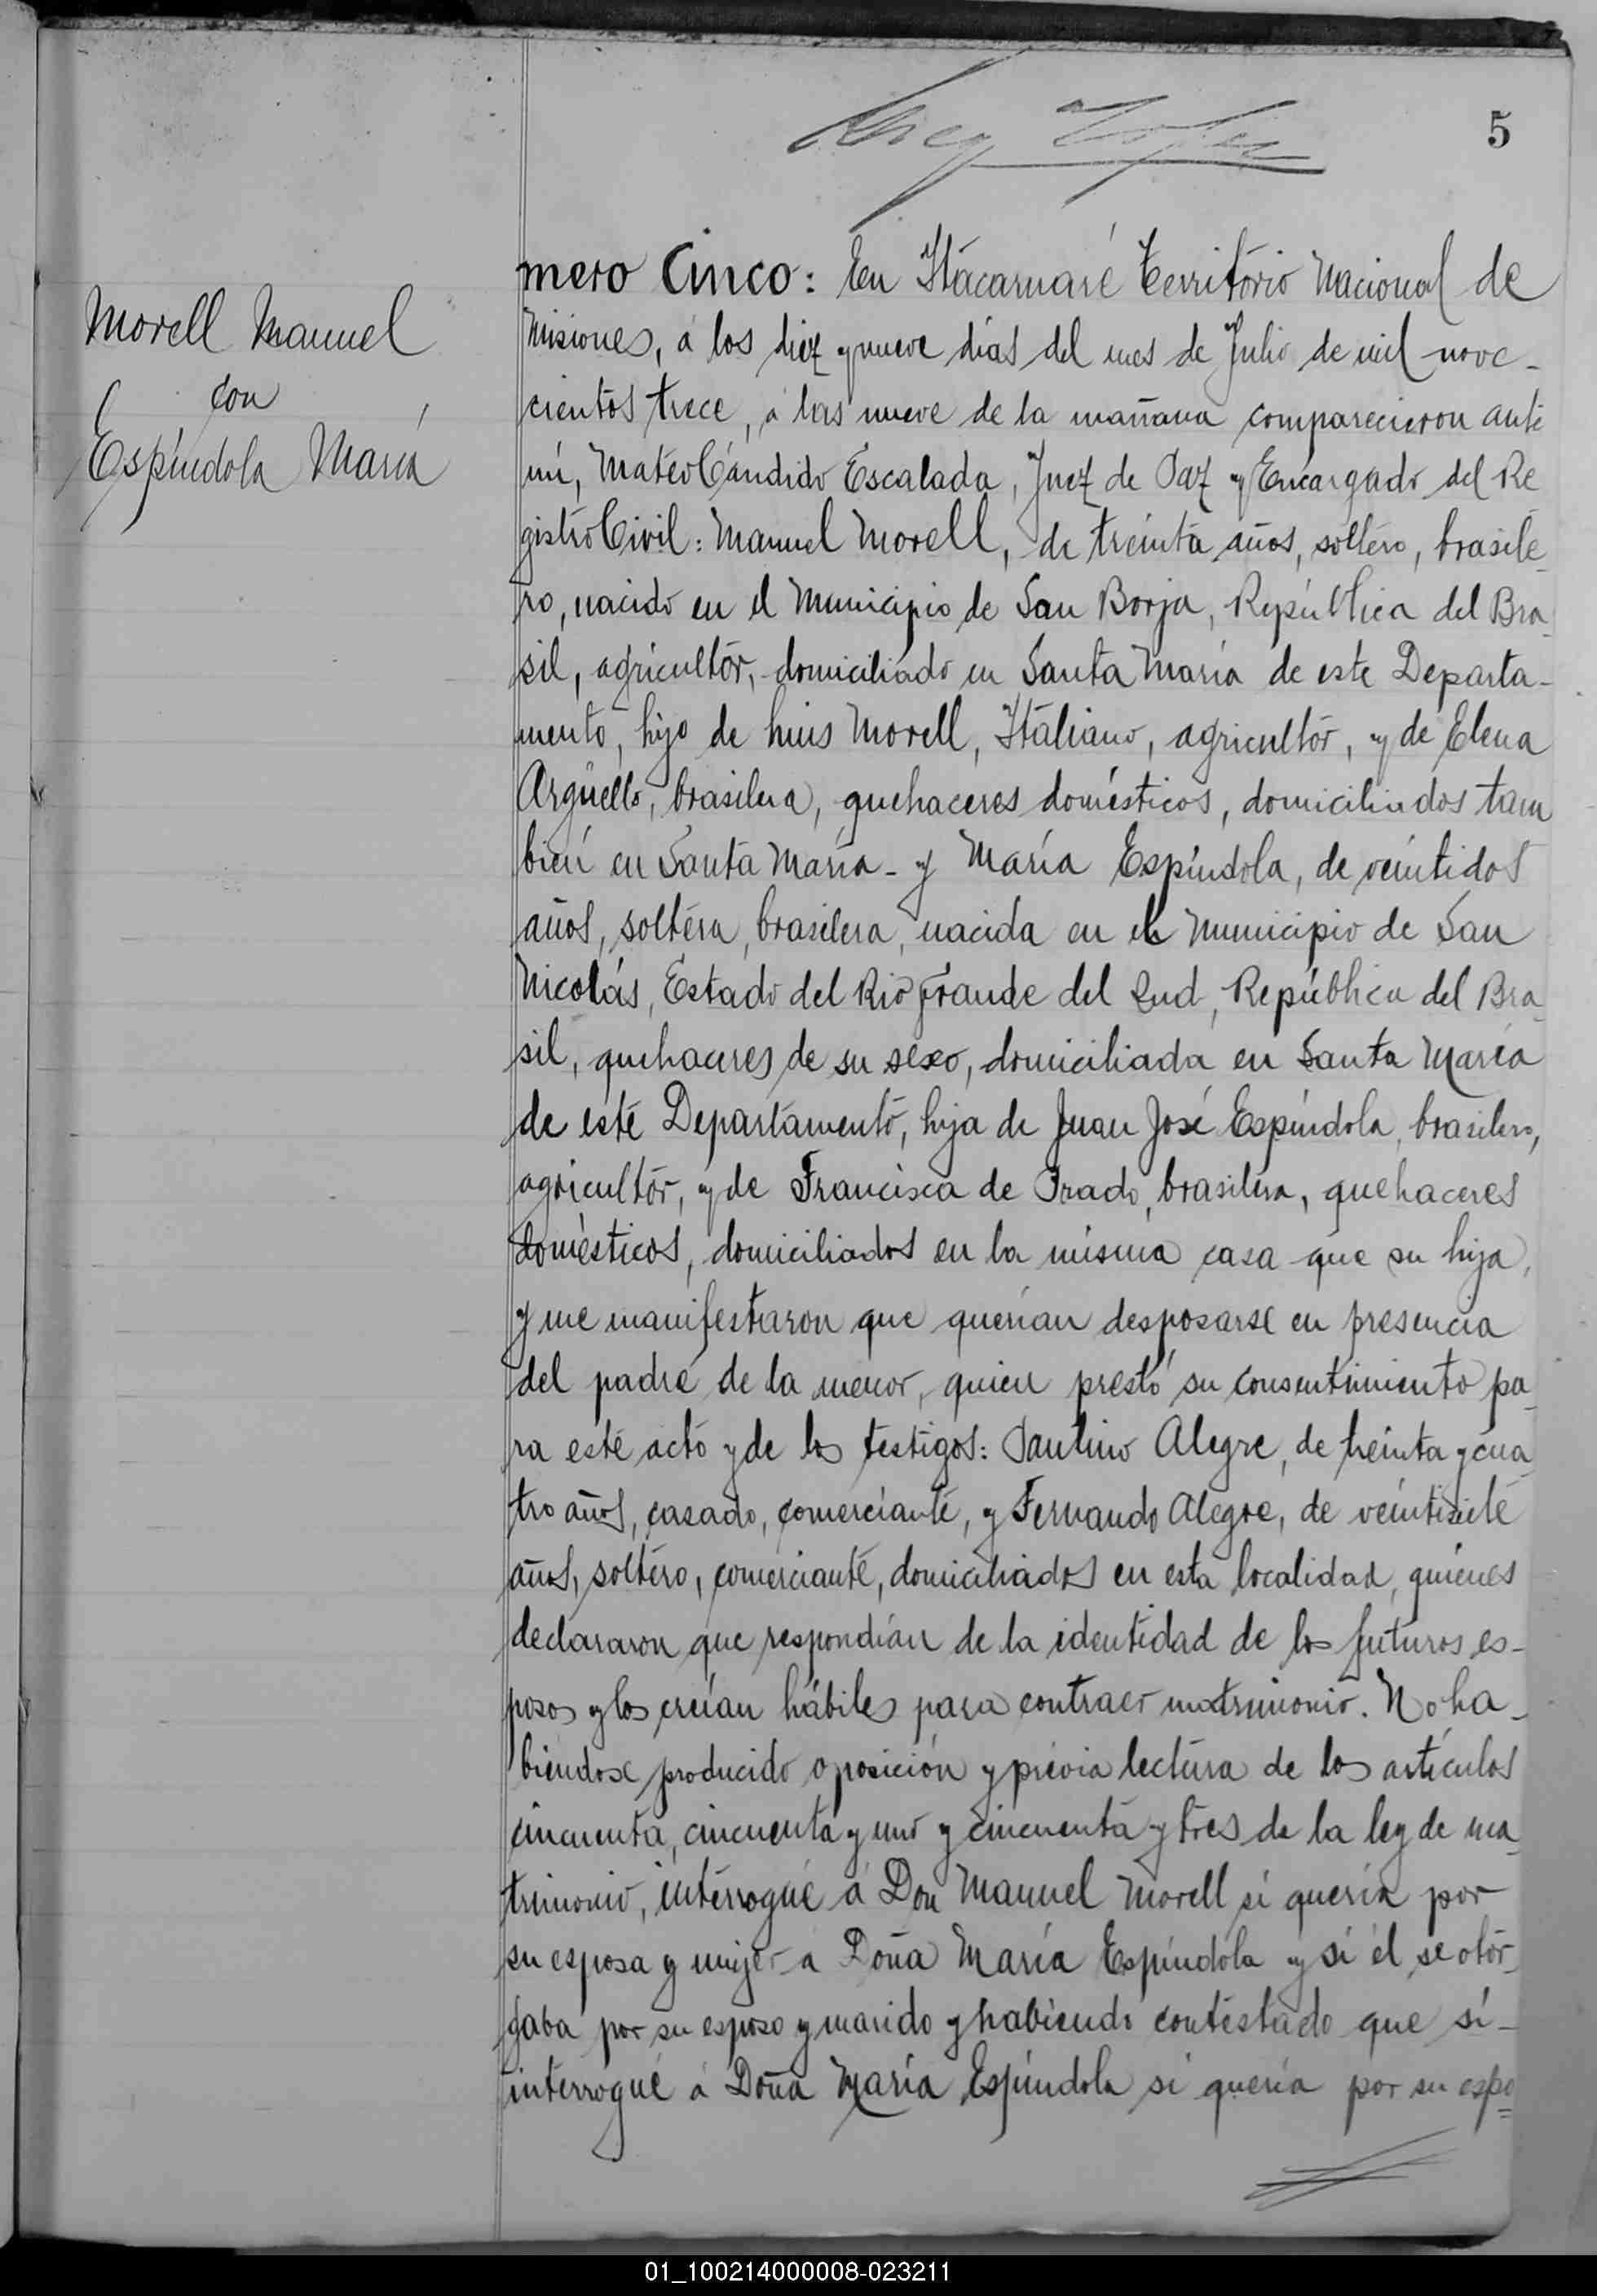 5
Morell Manuel
con
Espíndola María
mero Cinco: En Itacaruaré Territorio Nacional de
Misiones, á los diez y nueve días del mes de Julio de mil nove-
cientos trece, á las nueve de la mañana comparecieron ante
mí, Mateo Cándido Escalada, Juez de Paz y Encargado del Re
gistro Civil: Manuel Morell, de treinta años, soltero, brasile-
ro, nacido en el Municipio de San Borja, República del Bra-
sil, agricultor, domiciliado en Santa María de este Departa-
mento, hijo de Luis Morell, Italiano, agricultor, y de Elena
Argüello, brasilera, quehaceres domésticos, domiciliados tam
bien en Santa María - y María Espíndola, de veintidos
años, soltera, brasilera, nacida en el Municipio de San
Nicolás, Estado del Rio Grande del Sud, República del Bra-
sil, quehaceres de su sexo, domiciliada en Santa María
de este Departamento, hija de Juan José Espíndola, brasilero,
agricultor, y de Francisca de Prado, brasilera, quehaceres
domésticos, domiciliados en la misma casa que su hija,
y me manifestaron que querían desposarse en presencia
del padre de la menor, quien prestó su consentimiento pa-
ra este acto y de los testigos: Paulino Alegre, de treinta y cua
tro años, casado, comerciante, y Fernando Alegre, de veintisiete
años, soltero, comerciante, domiciliados en esta localidad, quiénes
declararon que respondían de la identidad de los futuros es-
posos y los creían hábiles para contraer matrimonio. No ha-
biéndose producido oposición y prévia lectura de los artículos
cincuenta, cincuenta y uno y cincuenta y tres de la ley de ma-
trimonio, interrogué á Don Manuel Morell si quería por
su esposa y mujer á Doña María Espíndola y si él se otor-
gaba por su esposo y marido y habiendo contestado que sí-
interrogué á Doña María Espíndola si quería por su espo=
01_100214000008-023211